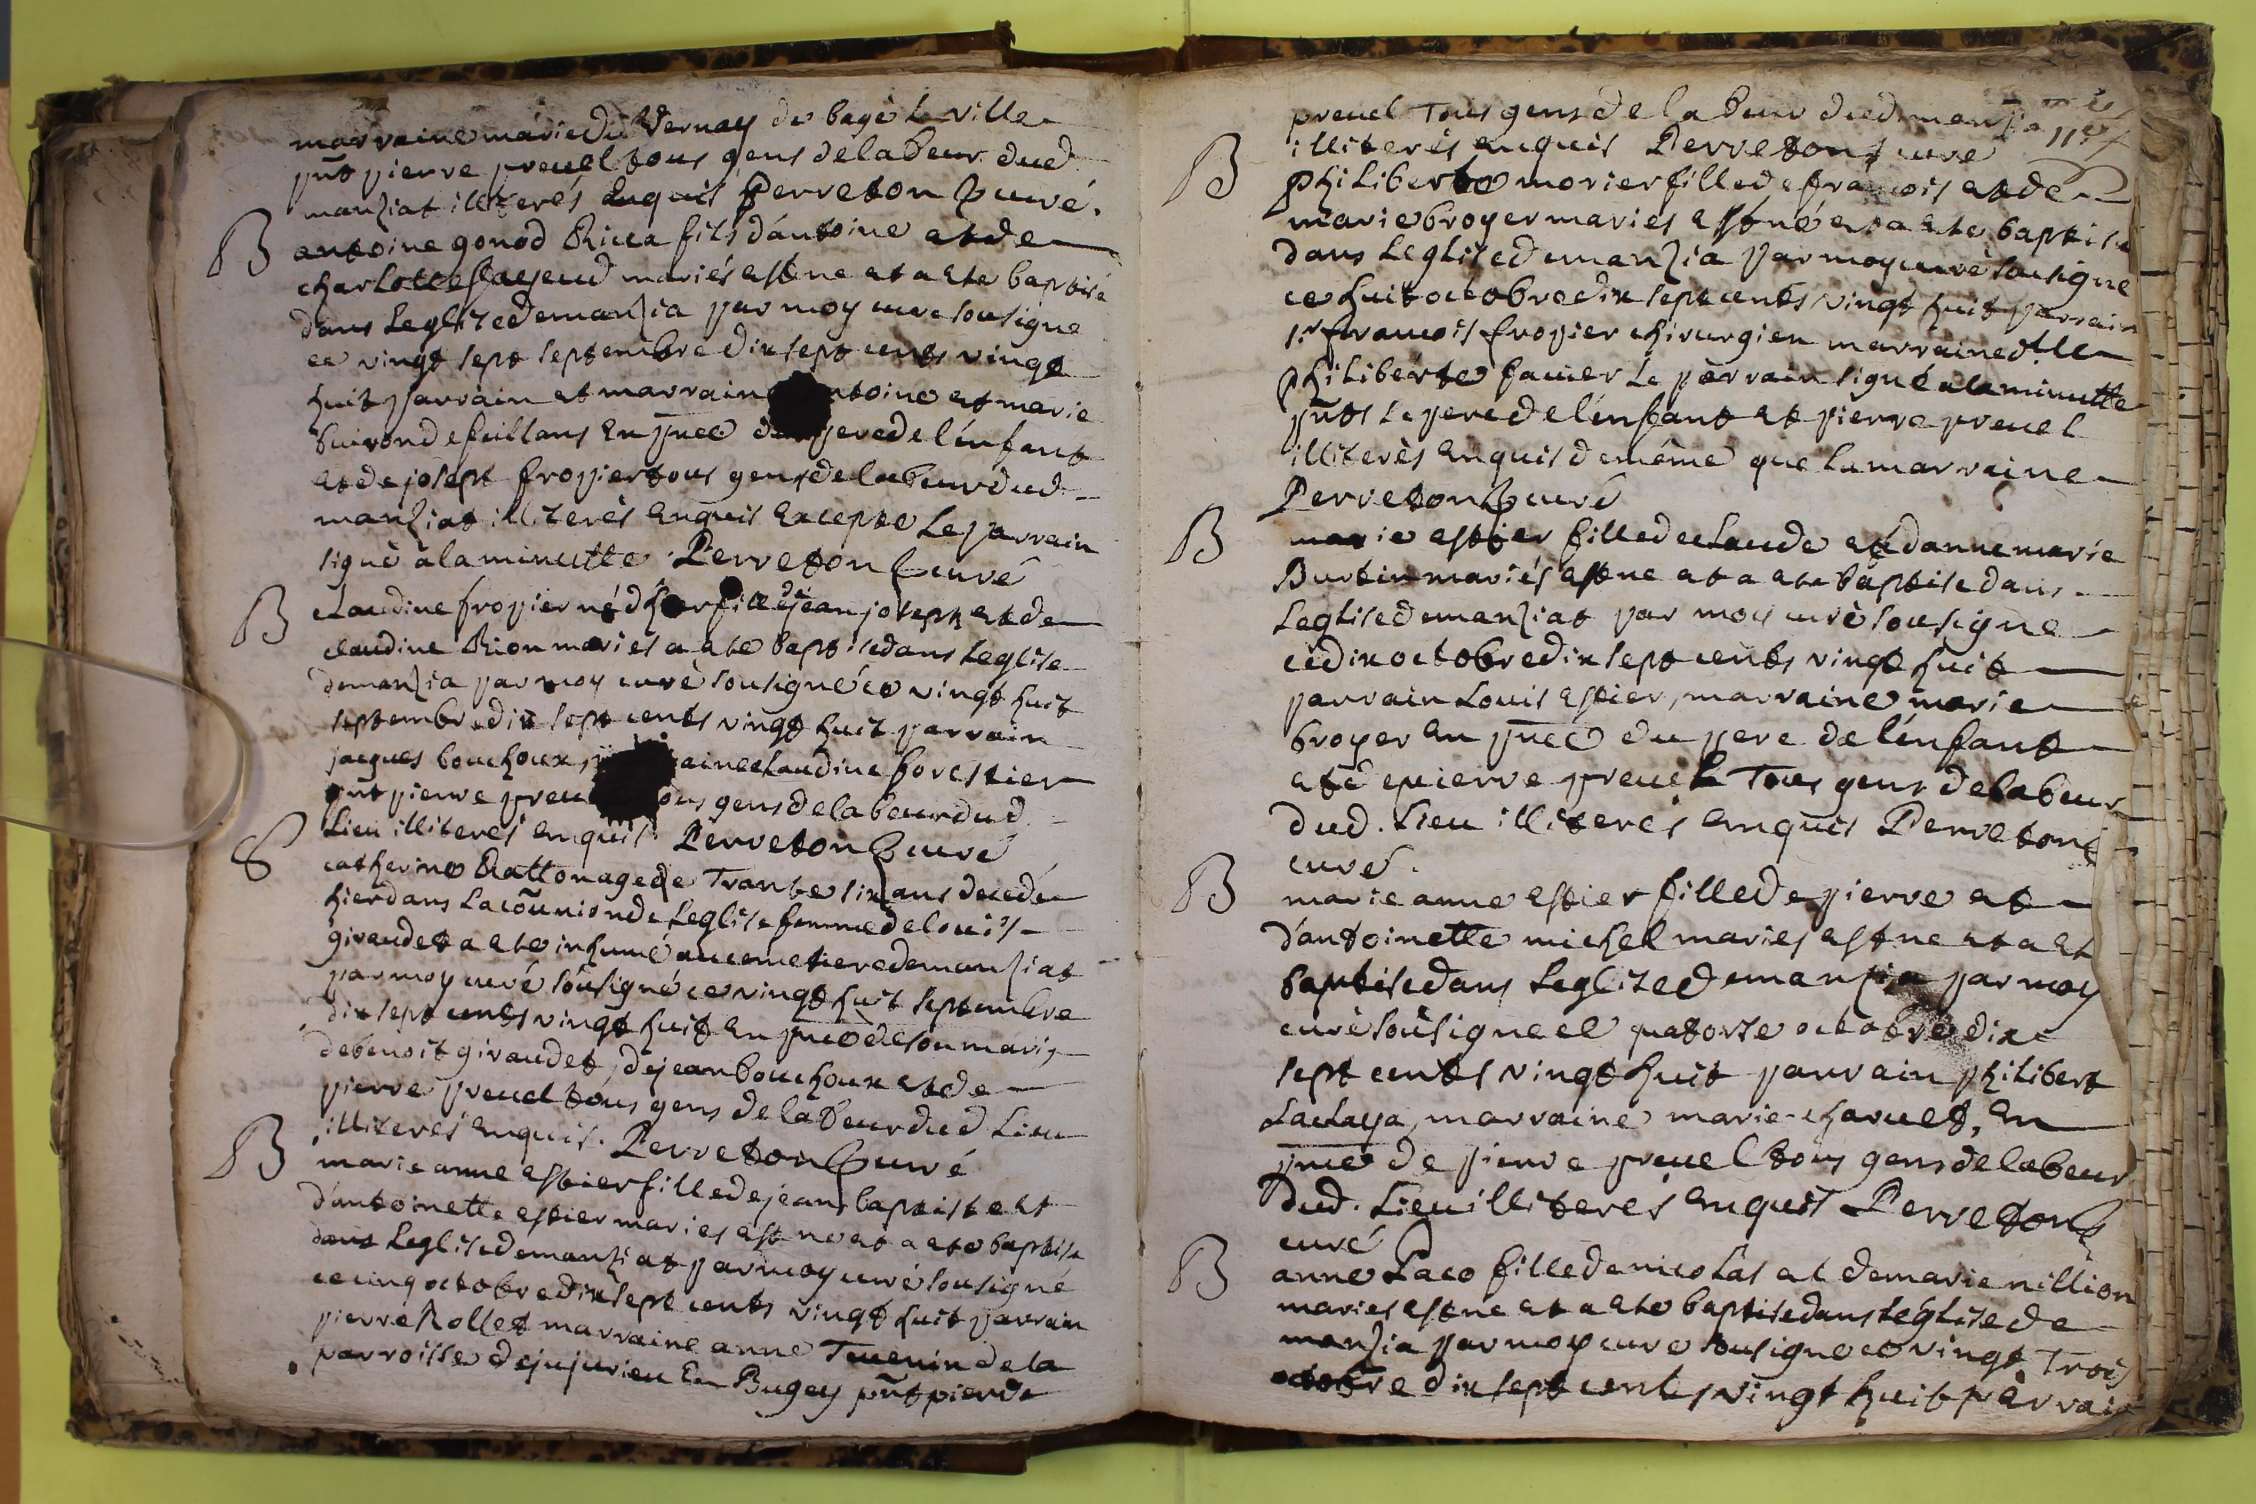 marraine marie du Vernay de bagé La ville
pnt pierre preuel tous gens de labeur dud
manziat illiterés enquis Perreton curé.
B antoine gonod Ricca fils d'antoine et de
charlotte mariés est ne et a ete baptisé
dans Leglize de manzia par moy curé sousigne
ce vingt sept septembre dix sept cents vingt
huit parrain et marrain ntoine et marie
buirond en pnce du pere de lénfant
et de josept fropier tous gens de labeur dud
manziat illiterés enquis excepte Le parrain
signé à la minutte. Perreton curé
B claudine fropier né d'hier fille de jean joseph et de
claudine Rion maries a ete baptise dans Leglise
demanzia par moy curé sousigné ce vingt huit
septembre dix sept cents vingt huit parrain
jacques bouchoux, aine claudine forestier
pnt pierre preu ous gens de labeur dud
Lieu illiterés enquis. Perreton curé
S catherine Ratton agee de Trante six ans decedée
hier dans La coṁunion de Leglise femme de louis
giraudet a ete inhumé au cemetiere de manziat
par moy curé sousigné ce vingt huit septembre
dix sept cents vingt huit en pnce de son maris
de benoit giraudet, de jean bouchoux et de
pierre preuel tous gens de labeur dud Lieu
illiterés enquis. Perreton curé
B marie anne estier fille de jean baptiste et
d'antoinette estier maries est ne et a ete baptise
dans Leglise de manziat par moy curé sousigné
ce cinq octobre dix sept cents vingt huit parrain
pierre Rollet marraine anne Tuenin de la
parroisse de jujurieu En Bugey pnt pierre
preuel Tous gens de labeur dud manzia
illiterés enquis Perreton curé
B Philiberte morier fille de francois et de
marie broyer maries est né et a ete baptise
dans Leglise de manzia par moy curé sousigne
ce huit octobre dix sept cents vingt huit parrain
sr francois fropier chirurgien marraine dlle
Philibérte favier Le pàrrain signé a la minutte
pnts Le pere de lénfant et pierre preuel
illiterès enquis de même que la marraine
Perreton curé
B marie estier fille de claude et danne marie
Burtin mariés est ne et a ete baptise dans
Leglise de manziat par moy curè sousigne
ce dix octobre dix sept cents vingt huit
parrain Louis estier, marraine marie
broyer en pnce du pere de lénfant
et de pierre preuel Tous gens de labeur
dud. Lieu illiterés enquis Perreton
curé.
B marie anne estier fille de pierre et
d'antoinette michel maries est ne et a et
baptise dans Leglize de manzia par moy
curé sousigne ce quatorze octobre dix
sept cents vingt huit parrain philibert
Laclaya, marraine marie charvet, en
pnce de pierre preuel tous gens de labeur
dud. Lieu illiterés enquis Perreton
curé
B anne Laco fille de nicolas et de marie nillion
maries est ne et a ete baptise dans Léglise de
manzia par moy curé sousigne ce vingt Trois
octobre dix sept cents vingt huit pàrrain